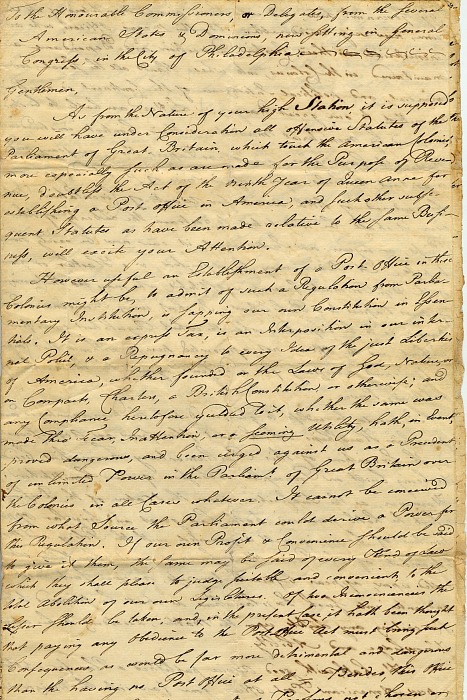 To the Honourable Commissioners, or Delegates, from the several
American States & Dominions, now sitting in General
Congress, in the City of Philadelphia
Gentlemen,
As from the Nature of your high Station it is supposed
you will have under Consideration all offensive Statutes of the
Parliament of Great Britain, which touch the American Colonies
more especially such as are made for the Purpose of Reve-
nue, doubtless the Act of the ninth Year of Queen Anne for
establishing a Post office in America, and such other subse-
quent Statutes as have been made relative to the same Busi-
ness, will excite your Attention.
However useful an Establishment of a Post Office in these
Colonies might be, to admit of such a Regulation from Parlia-
mentary Institution, is sapping our own Constitution in Essen-
tials. It is an express Tax, is an Interposition in our inter-
nal Police, & a Repugnancy to every Idea of the just Liberties
of America, whether founded on the Laws of God, Nature, or
on Compacts, Charters, a British Constitution or otherwise; and
any Compliance heretofore yielded to it, whether the same was
made thro' Fear, Inattention, or a seeming Utility, hath, in Event,
proved dangerous, and been urged against us as a Precedent,
of unlimited Power in the Parliamt. of Great Britain over
the Colonies in all Cases whatever. It cannot be conceived
from what Source the Parliament could derive a Power for
this Regulation. If our own Profit & Convenience should be said
to give it them, the same may be said of every Kind of Law
which they shall please to judge profitable and convenient, to the
total Abolition of our own Legislatures. Of two Inconveniences the
Lesser should be taken; and, in the present case, it hath been thought
that paying any Obedience to the Post office Act must bring such
Consequences as would be far more detrimental and dangerous
than the having no Post Office at all. Besides, this Office